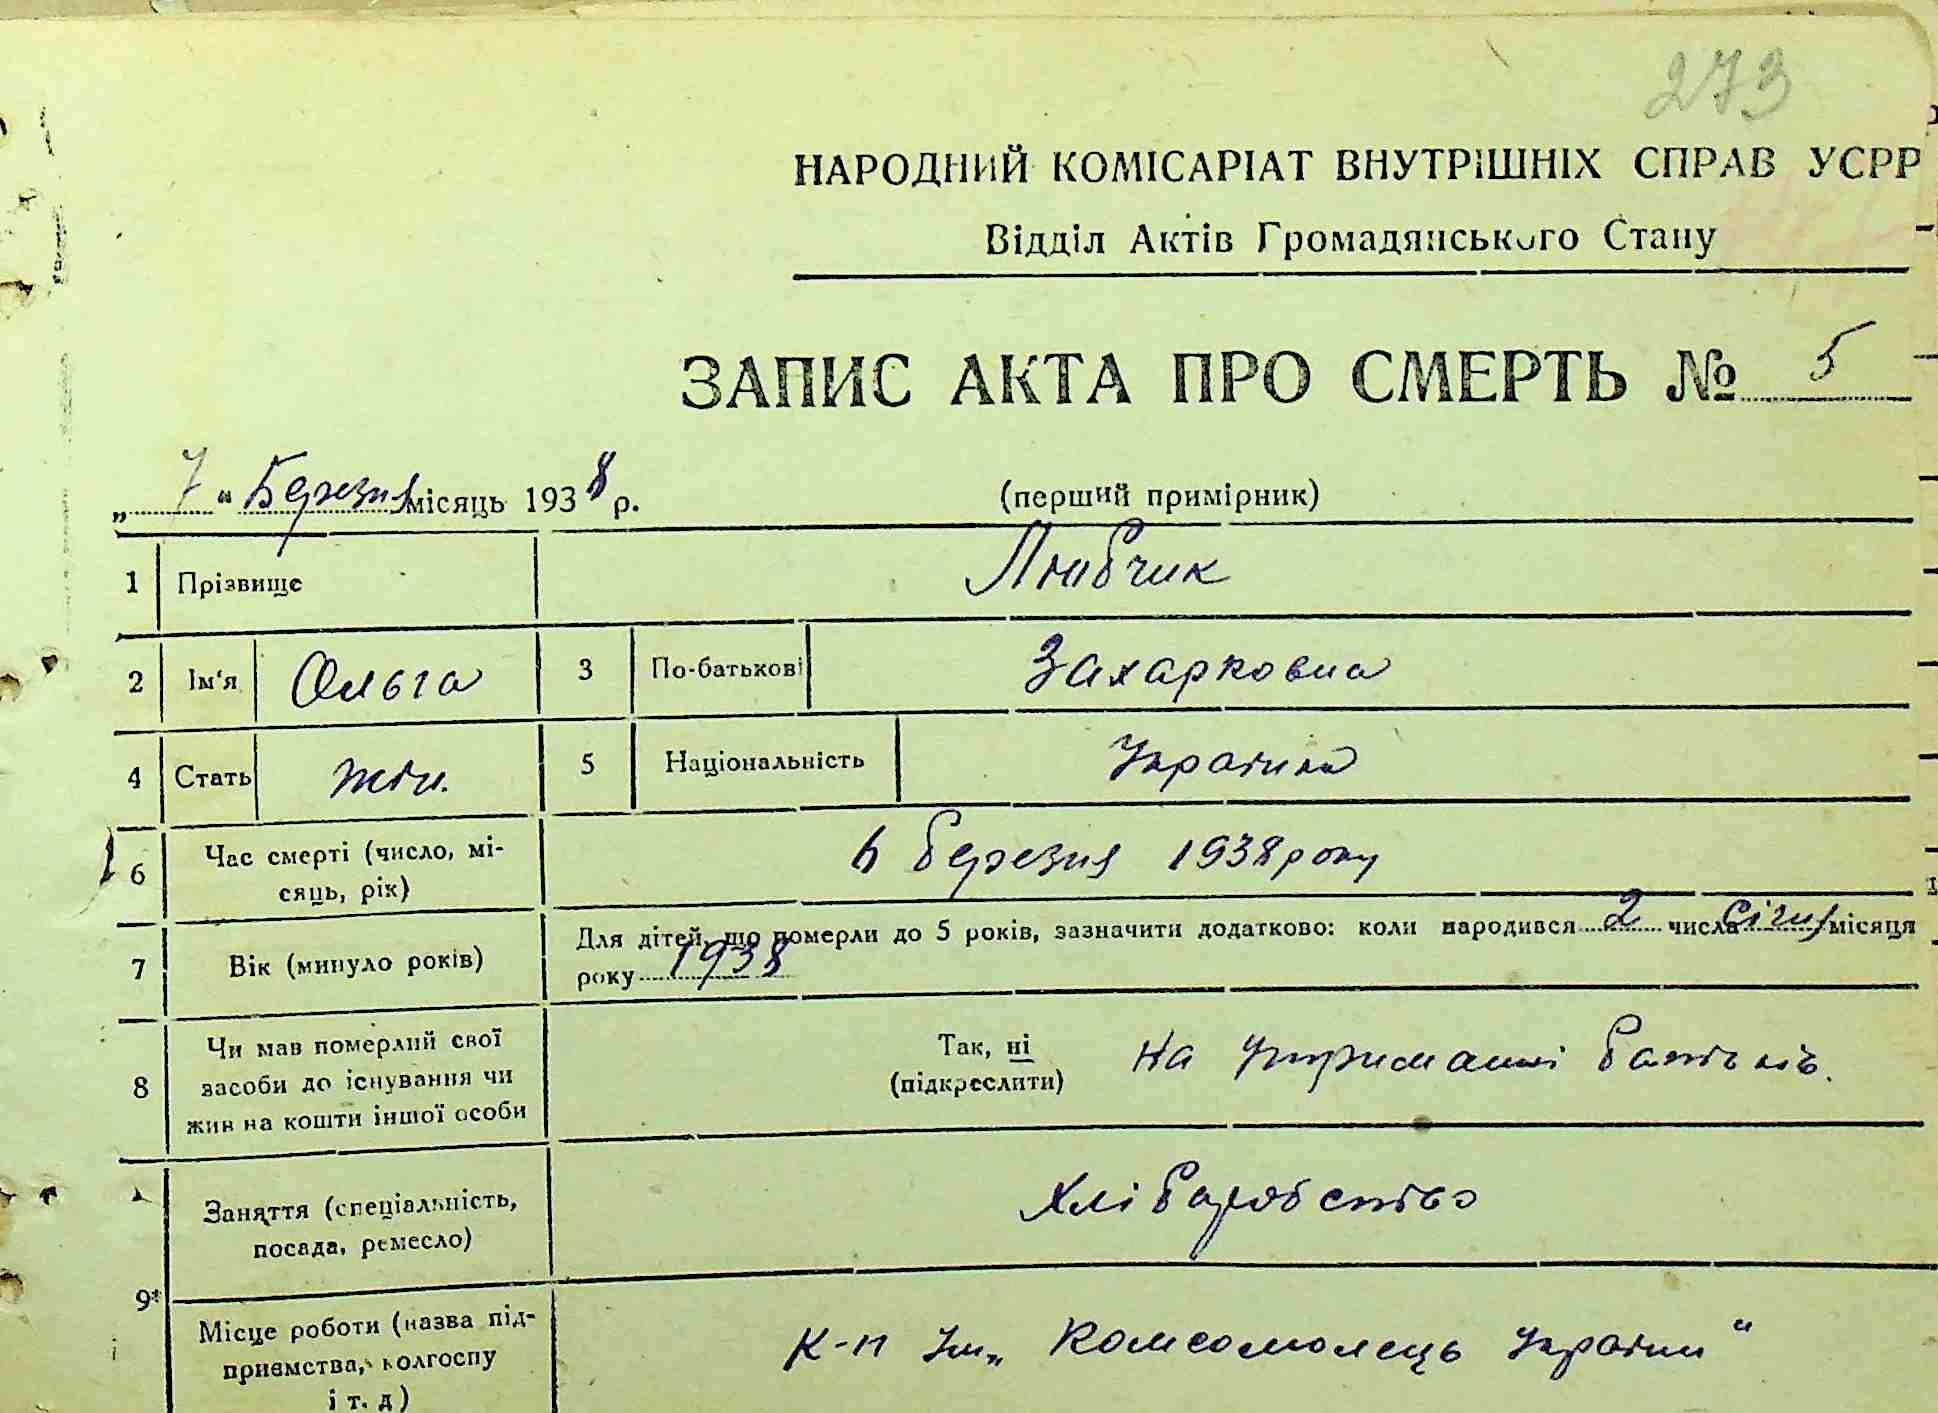 273
НАРОДНИЙ КОМІСАРІАТ ВНУТРІШНІХ СПРАВ УСРР
Відділ Актів Громадянського Стану
ЗАПИС АКТА ПРО СМЕРТЬ № 5
„ 7 “ Березня місяць 1938 р. (перший примірник)
1 Прізвище Любчик
2 Ім‘я Ольга 3 По-батькові Захарковна
4 Стать жін. 5 Національність Українка
6 Час смерті (число, мі-
сяць, рік) 6 березня 1938 року
7 Вік (минуло років) Для дітей, що померли до 5 років, зазначити додатково: коли народився 2 числа Січня місяця
року 1938
8 Чи мав померлий свої
засоби до існування чи
жив на кошти іншої особи Так, ні
(підкреслити) на утриманні батьків.
Заняття (спеціальність,
посада, ремесло) Хліборобство
9*
Місце роботи (назва під-
приємства, колгоспу
і т. д) К-п Ім„ Комсомолець України“